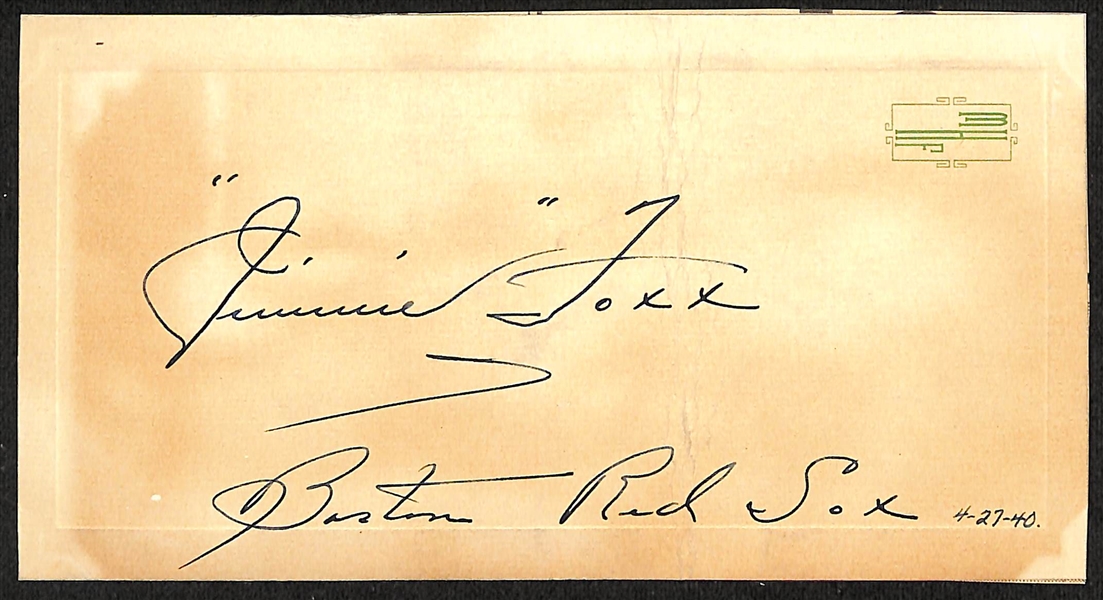 "Jimmie" Foxx
Boston Red Sox
4-27-40.